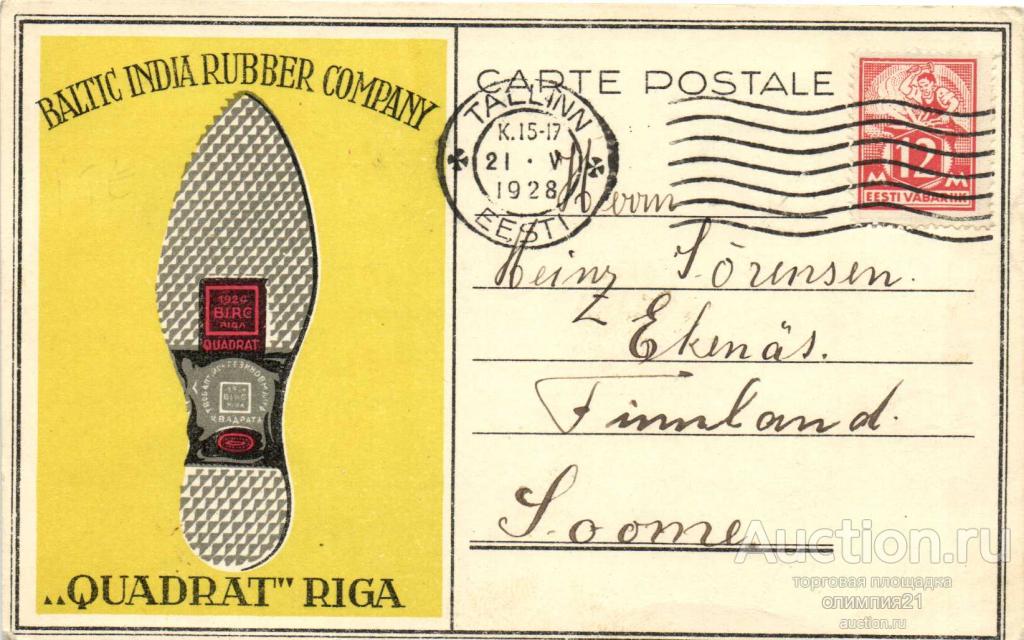 BALTIC INDIA RUBBER COMPANY
1924
BIRC
RIGA
QUADRAT
BIRC
RIGA
КВАДРАТА
„QUADRAT" RIGA
CARTE POSTALE
TALLINN
K.15-17
21 · V
1928
EESTI
12
M M
EESTI VABARIIK
Herrn
Heinz Sörensen.
Ekenäs.
Finnland.
Soome
Auction.ru
торговая площадка
олимпия21
auction.ru